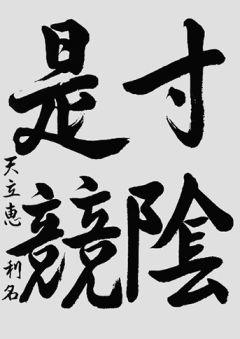 寸陰
是競
天立恵利名